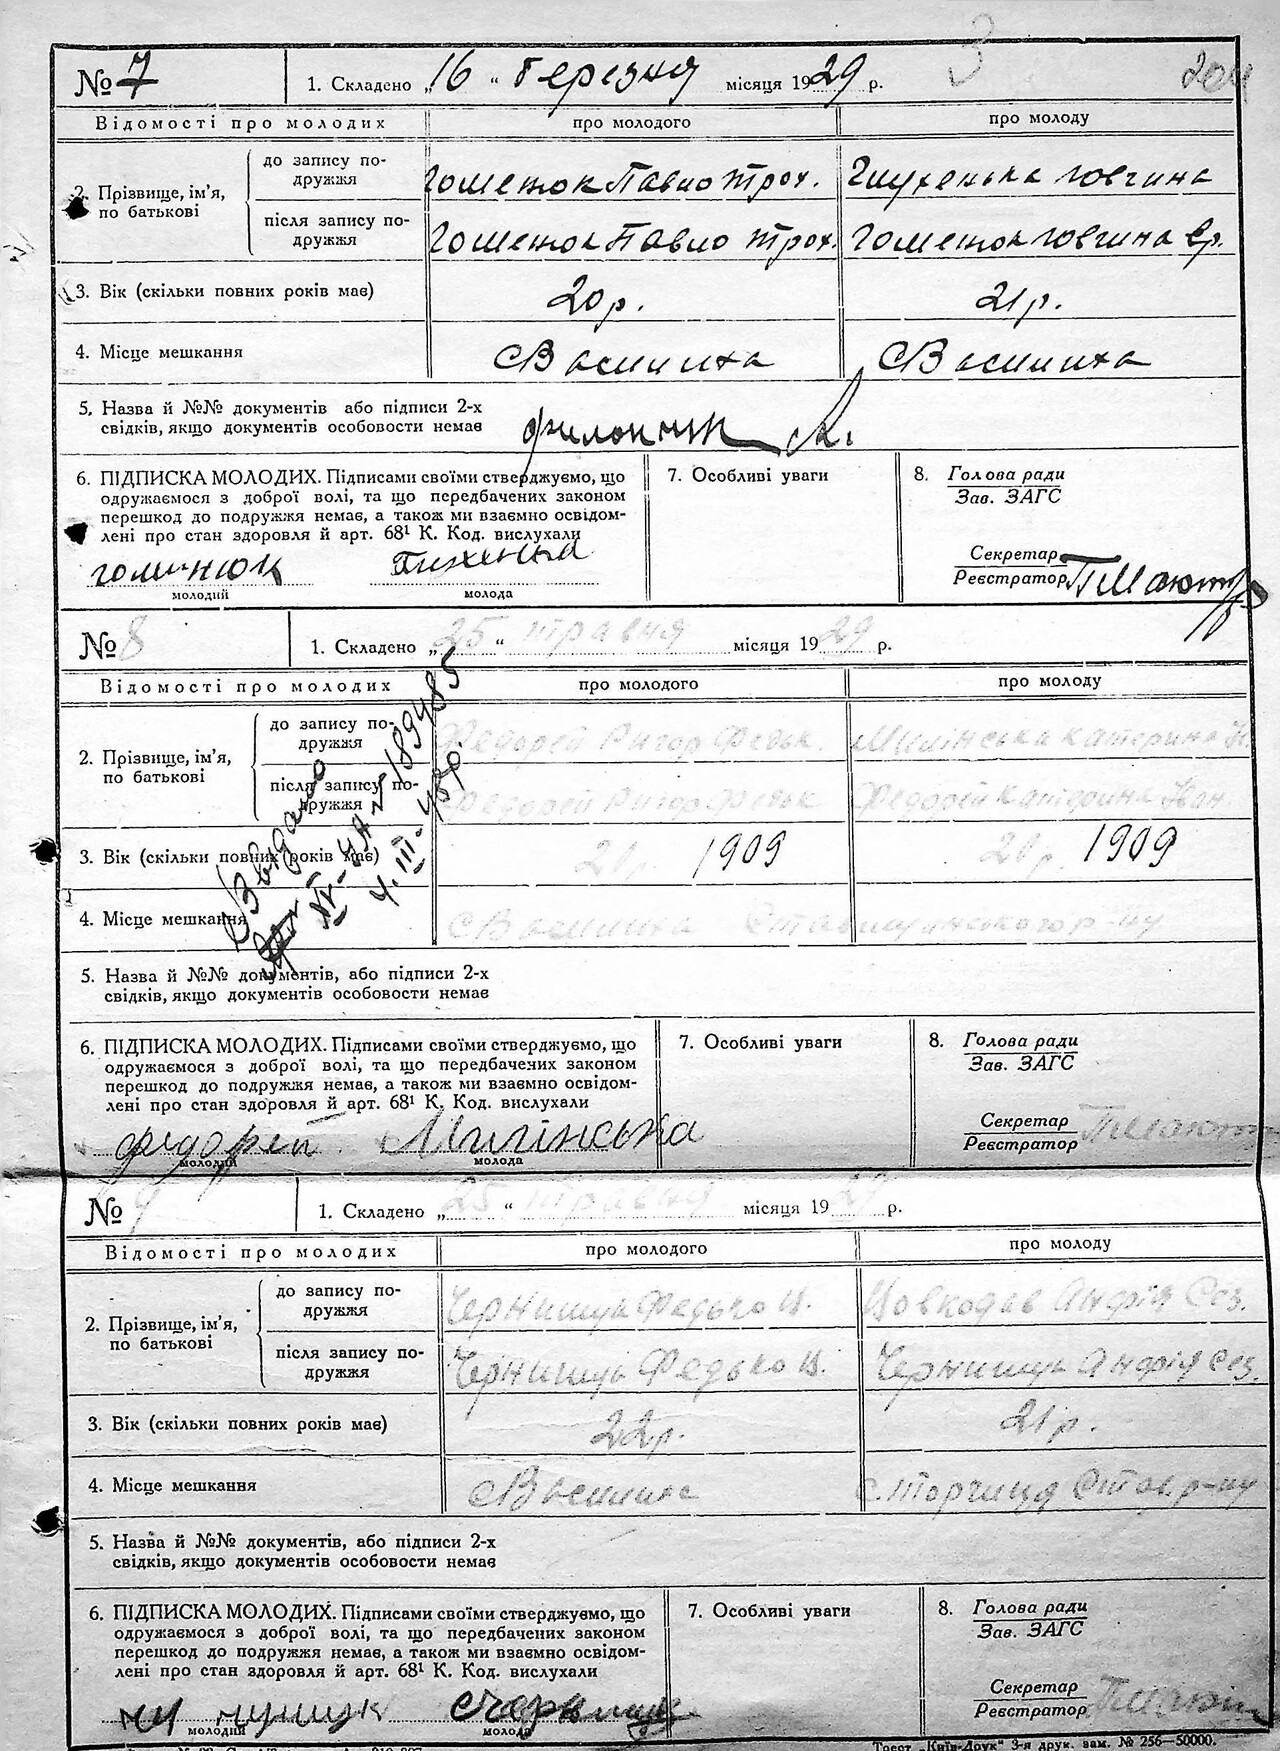 № 7 1. Складено „16“ березня місяця 1929 р. 3 204
Відомості про молодих про молодого про молоду
2. Прізвище, ім’я, по батькові
до запису подружжя Гоменюк Павло Трох. Глухенька Говгина
після запису подружжя Гоменюк Павло Трох. Гоменюк Говгина
3. Вік (скільки повних років має) 20 р. 21 р.
4. Місце мешкання с Василиха с Василиха
5. Назва й №№ документів або підписи 2-х
свідків, якщо документів особовости немає
6. ПІДПИСКА МОЛОДИХ. Підписами своїми стверджуємо, що
одружаємося з доброї волі, та що передбачених законом
перешкод до подружжя немає, а також ми взаємно освідом-
лені про стан здоровля й арт. 68¹ К. Код. вислухали
7. Особливі уваги
8. Голова ради
Зав. ЗАГС
Секретар
Реєстратор
гоменюк
молодий молода
№ 8 1. Складено „25“ травня місяця 1929 р.
Відомості про молодих про молодого про молоду
2. Прізвище, ім’я, по батькові
до запису подружжя Федорей Ригор Федьк Милінська Катерина
після запису подружжя Федорей Ригор Федьк Федорей Катерина Іван.
3. Вік (скільки повних років має) 20 р. 1909 20 р. 1909
4. Місце мешкання с Василиха Ставищанського р-ну
Св видано
4. III-45р.
5. Назва й №№ документів, або підписи 2-х
свідків, якщо документів особовости немає
6. ПІДПИСКА МОЛОДИХ. Підписами своїми стверджуємо, що
одружаємося з доброї волі, та що передбачених законом
перешкод до подружжя немає, а також ми взаємно освідом-
лені про стан здоровля й арт. 68¹ К. Код. вислухали
7. Особливі уваги
8. Голова ради
Зав. ЗАГС
Секретар
Реєстратор
федорей Милінська
молодий молода
№ 9 1. Складено „25“ травня місяця 1929 р.
Відомості про молодих про молодого про молоду
2. Прізвище, ім’я, по батькові
до запису подружжя Чернишук Федько
після запису подружжя Чернишук Федько Чернишук
3. Вік (скільки повних років має) 22 р. 21 р.
4. Місце мешкання с Василиха с. Торчиця Став р-ну
5. Назва й №№ документів, або підписи 2-х
свідків, якщо документів особовости немає
6. ПІДПИСКА МОЛОДИХ. Підписами своїми стверджуємо, що
одружаємося з доброї волі, та що передбачених законом
перешкод до подружжя немає, а також ми взаємно освідом-
лені про стан здоровля й арт. 68¹ К. Код. вислухали
7. Особливі уваги
8. Голова ради
Зав. ЗАГС
Секретар
Реєстратор
молодий молода
Трест „Київ-Друк“ 3-я друк. зам. № 256—50000.